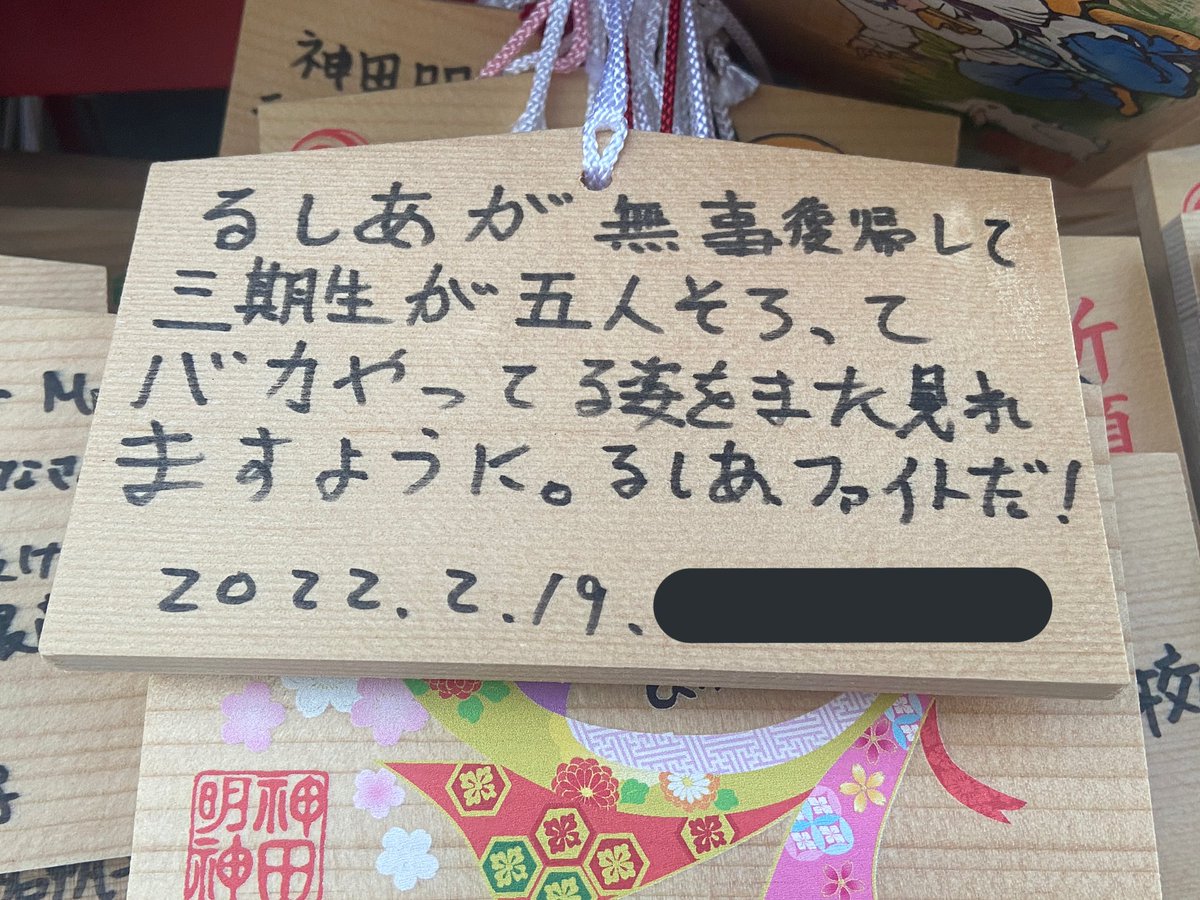 神田明
るしあが無事復帰して
三期生が五人そろって
バカやってる姿をまた見れ
ますように。るしあファイトだ!
2022.2.19.
祈
願
なさ
け
び
校
神田
明神